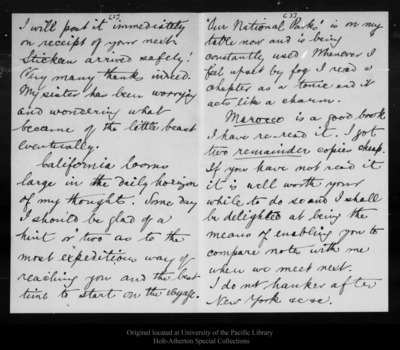 (2)
I will post it immediately
on receipt of your next.
Stickeen arrived safely!
Very many thanks indeed.
My sister has been worrying
and wondering what
became of the little beast
eventually.
California looms
large in the daily horizon
of my thought. Some day
I should be glad of a
hint or two as to the
most expeditious way of
reaching you and the best
time to start on the voyage.
(3)
"Our National Parks" is on my
table now and is being
constantly used. Whenever I
feel upset by fog I read a
chapter as a tonic and it
acts like a charm.
Marocco is a good book
I have re-read it. I got
two remainder copies cheap.
If you have not read it
it is well worth your
while to do so and I shall
be delighted at being the
means of enabling you to
compare notes with me
when we meet next.
I do not hanker after
New York &c &c.
Original located at University of the Pacific Library
Holt-Atherton Special Collections